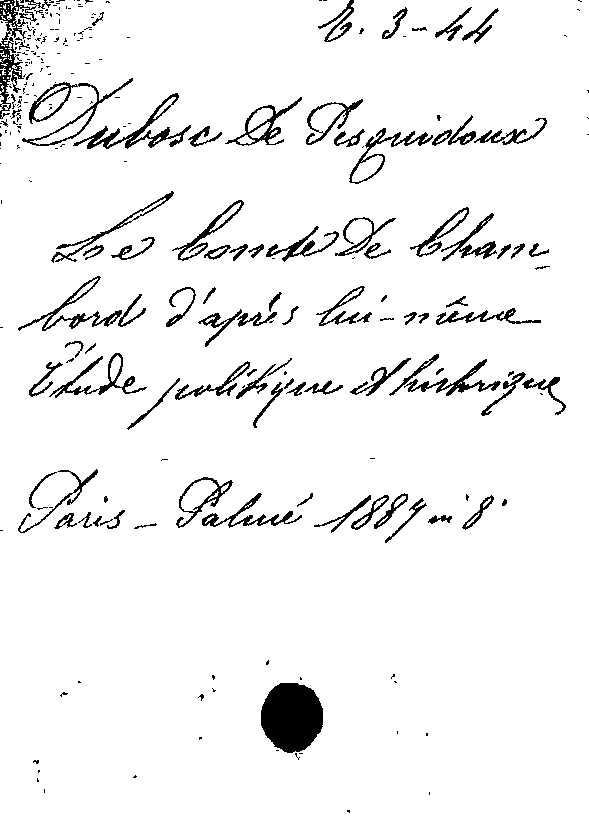 E. 3-44
Dubosc De Pesquidoux
Le Comte De Cham-
bord d'après lui-même
Étude politique et historique
Paris - Palmé 1887 in 8°